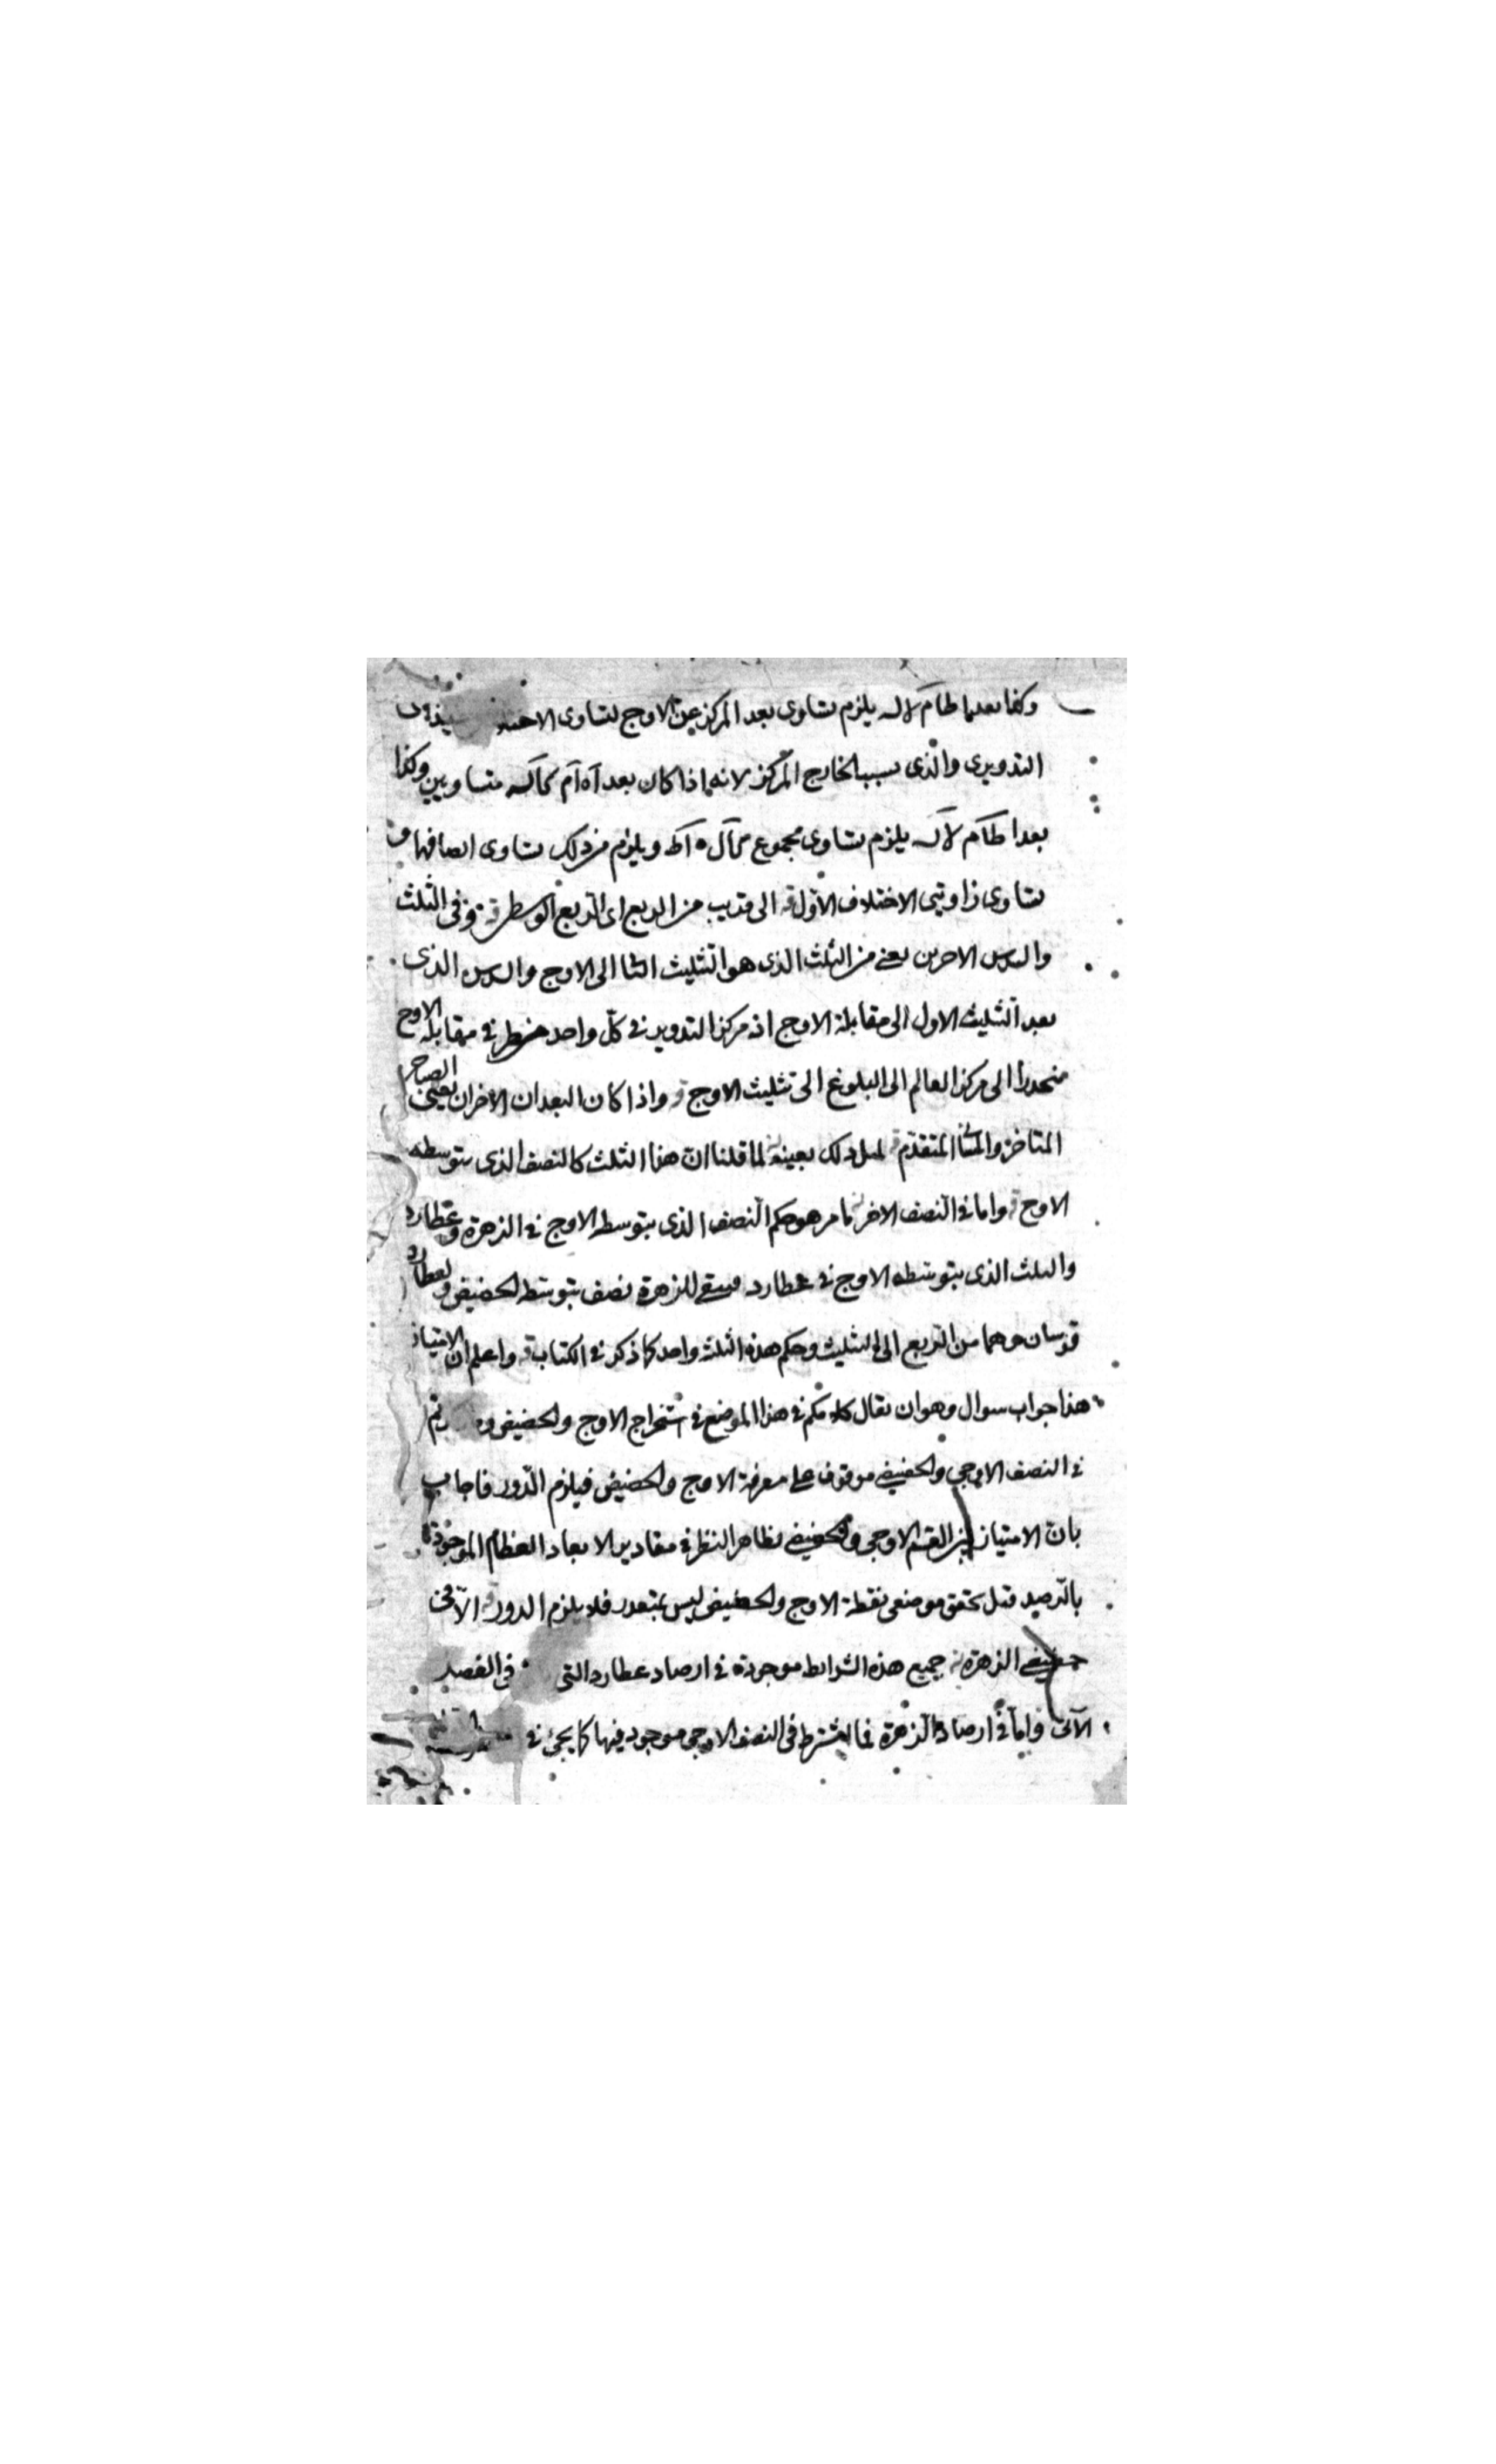 وكذا بعدا طام لاك يلزم تساوى بعد المركز عن الاوج لتساوى الاختلافين
التدويرى والذى بسبب الخارج المركز لانه اذا كان بعد آه آم كآك متساويين وكذا
بعدا طآم لآك يلزم تساوى مجموع كآل ه آط ويلزم من ذلك تساوى انصافهما
تساوى زاويتى الاختلاف الاول الى قريب من الربع اى الربع الوسطى وفى الثلث
والسدس الاخرين يعنى من الثلث الذى هو التثليث الثانى الى الاوج والسدس الذى
بعد التثليث الاول الى مقابلة الاوج اذ مركز التدوير فى كل واحد فى مقابلة الاوج
منحدرا الى مركز العالم الى البلوغ الى تثليث الاوج واذا كان البعدان الاخران يعنى الصباحى
المتاخر والمسائى المتقدم لمثل ذلك بعينه لما قلنا ان هذا الثلث كالنصف الذى يتوسطه
الاوج واما فى النصف الاخر ما مر هو حكم النصف الذى يتوسطه الاوج فى الزهرة وعطارد
والثلث الذى يتوسطه الاوج فى عطارد فبقى للزهرة نصف يتوسطه الحضيض ولعطارد
قوسان وهما من التربيع الى التثليث وحكم هذه الثلثة واحد كما ذكر فى الكتاب واعلم ان الامتياز
هذا جواب سوال وهو ان يقال كلامكم فى هذا الموضع فى استخراج الاوج والحضيض
فى النصف الاوجى والحضيضى موقوف على معرفة الاوج والحضيض فيلزم الدور فاجاب
بان الامتياز بين القسم الاوجى والحضيضى بظاهر النظر فى مقادير الابعاد العظام الموجودة
بالرصد قبل تحقق موضعى نقطة الاوج والحضيض ليس بمتعذر فلا يلزم الدور الا فى
حضيضى الزهرة جميع هذه الشرايط موجودة فى ارصاد عطارد التى فى الفصل
الآتى واما فى ارصاد الزهرة فما اشترط فى النصف الاوجى موجود فيها كما يجئ فى